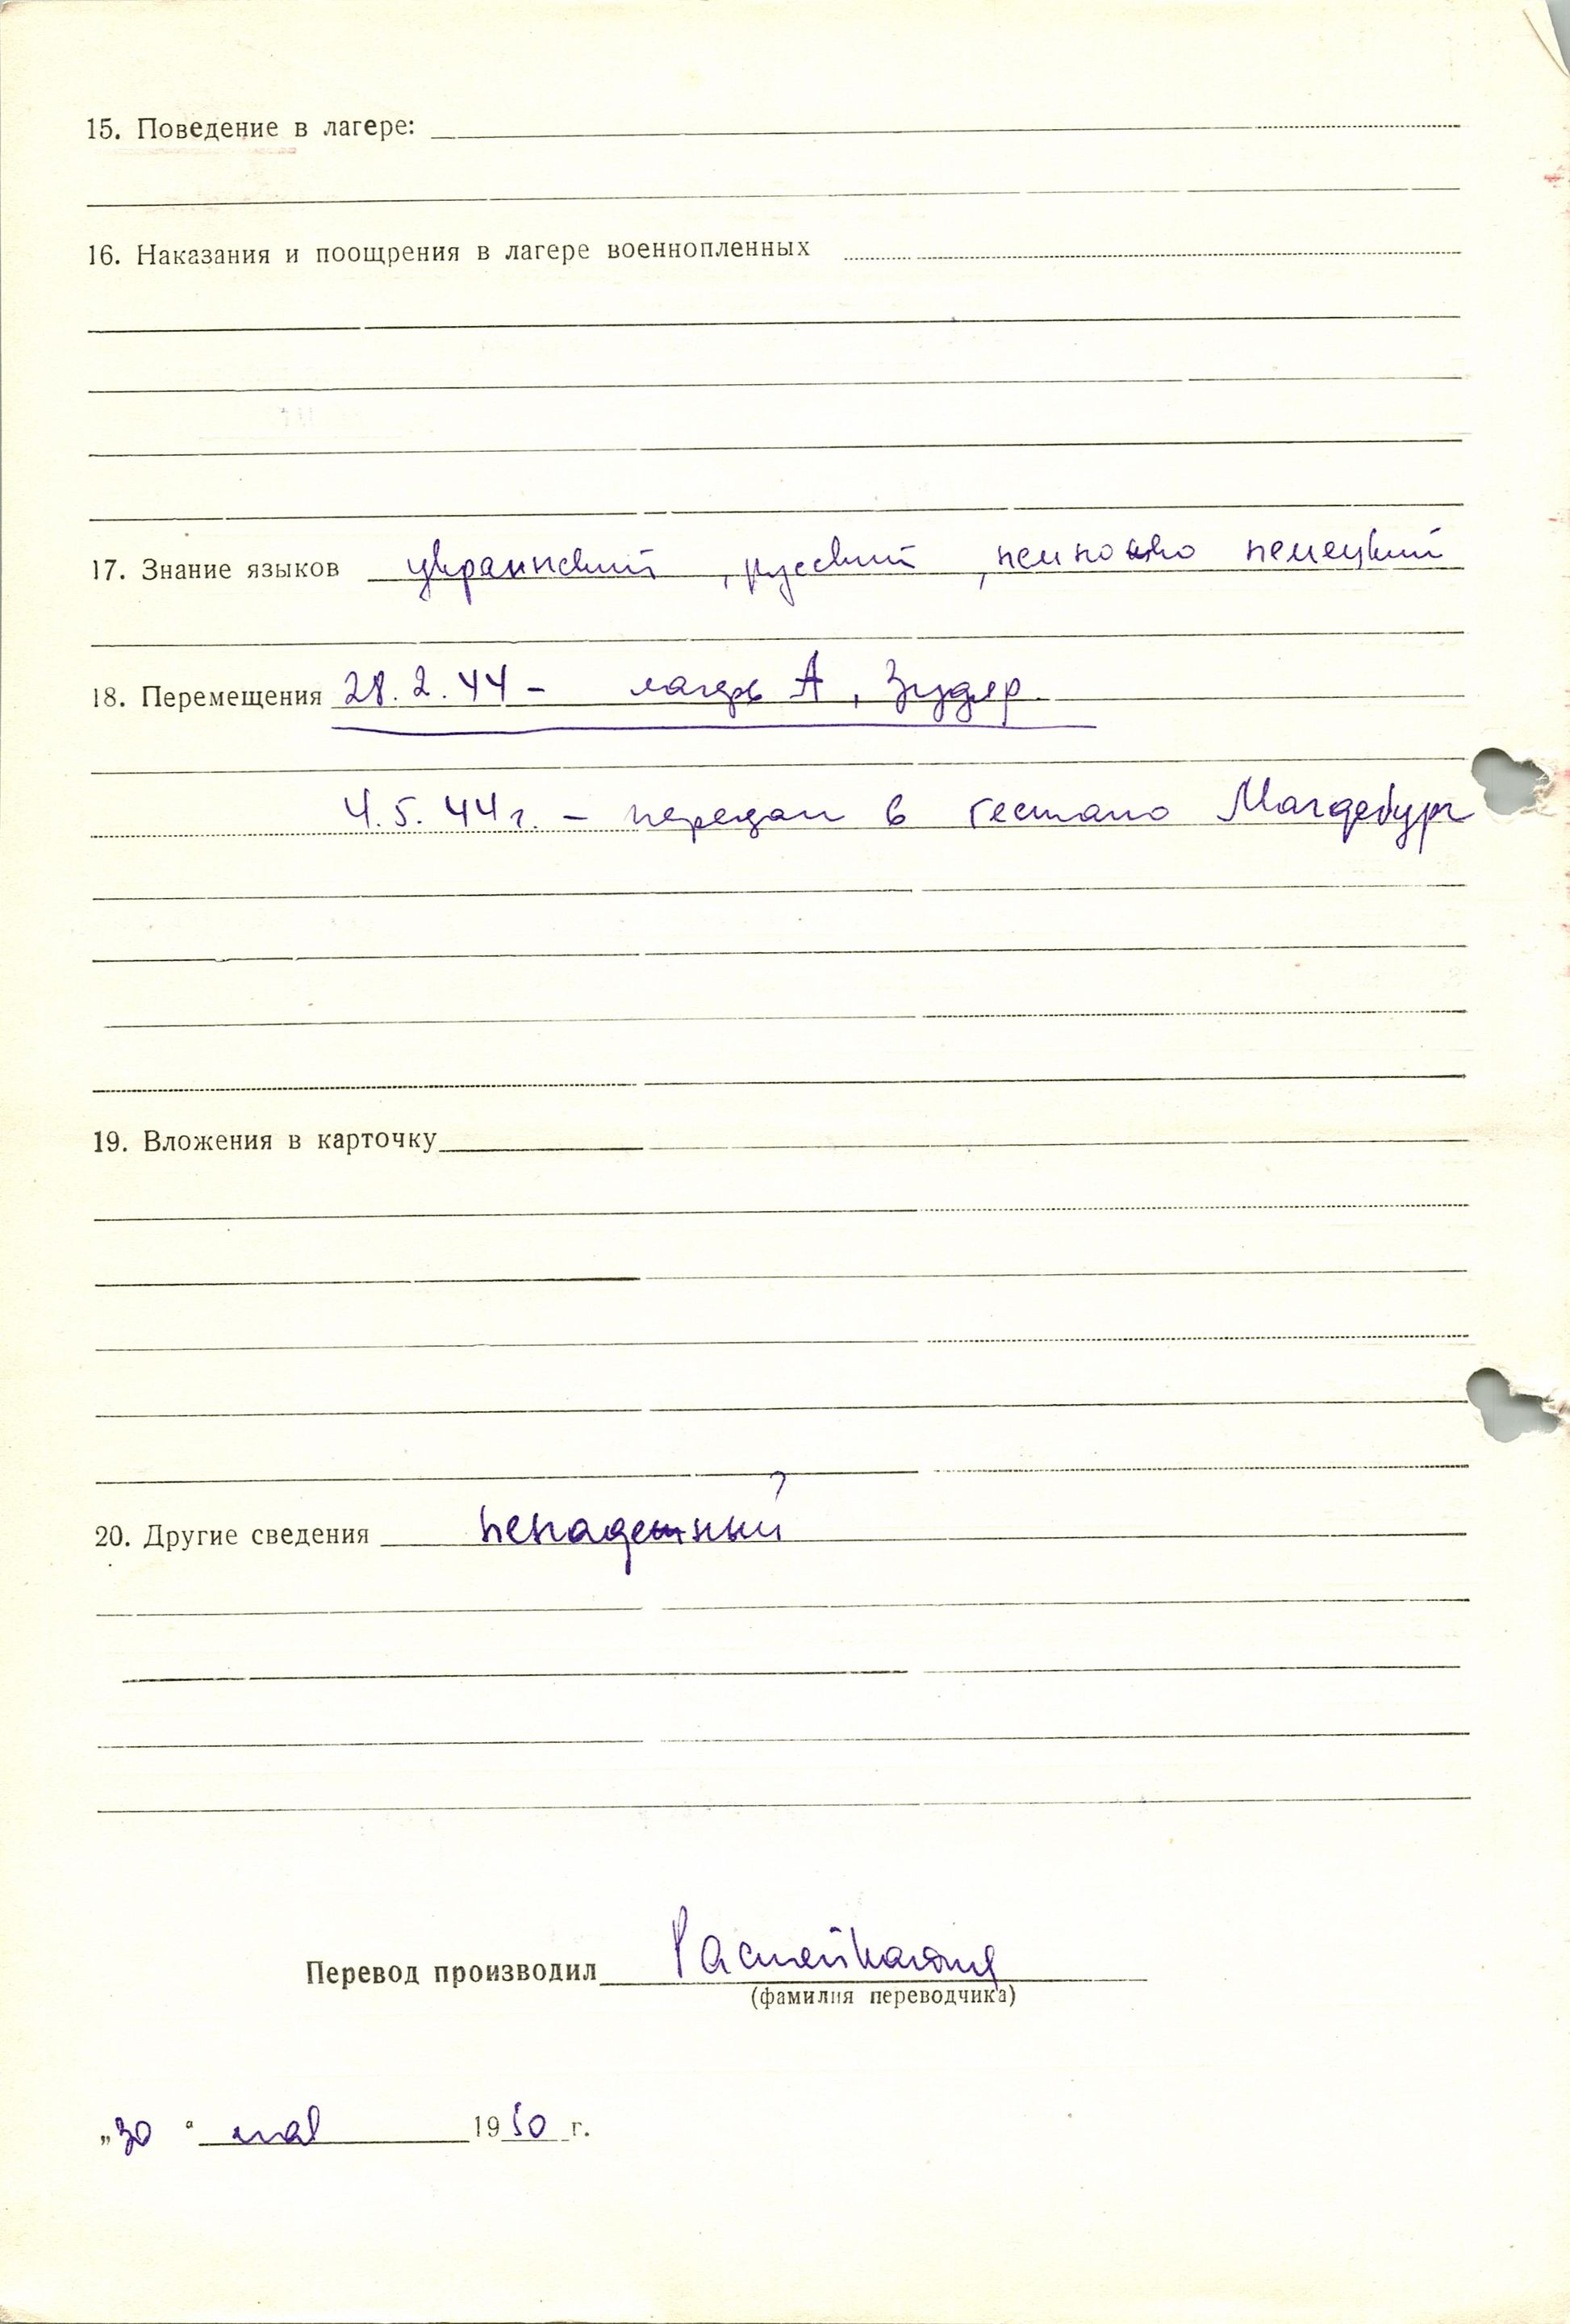 15. Поведение в лагере:
16. Наказания и поощрения в лагере военнопленных
17. Знание языков украинский, русский, немного немецкий
18. Перемещения 28.2.44 - лагерь А, Зюдер
4.5.44 г. - передан в гестапо Магдебург
19. Вложения в карточку
20. Другие сведения ненадежный
Перевод производил
(фамилия переводчика)
„30“ мая 1950 г.